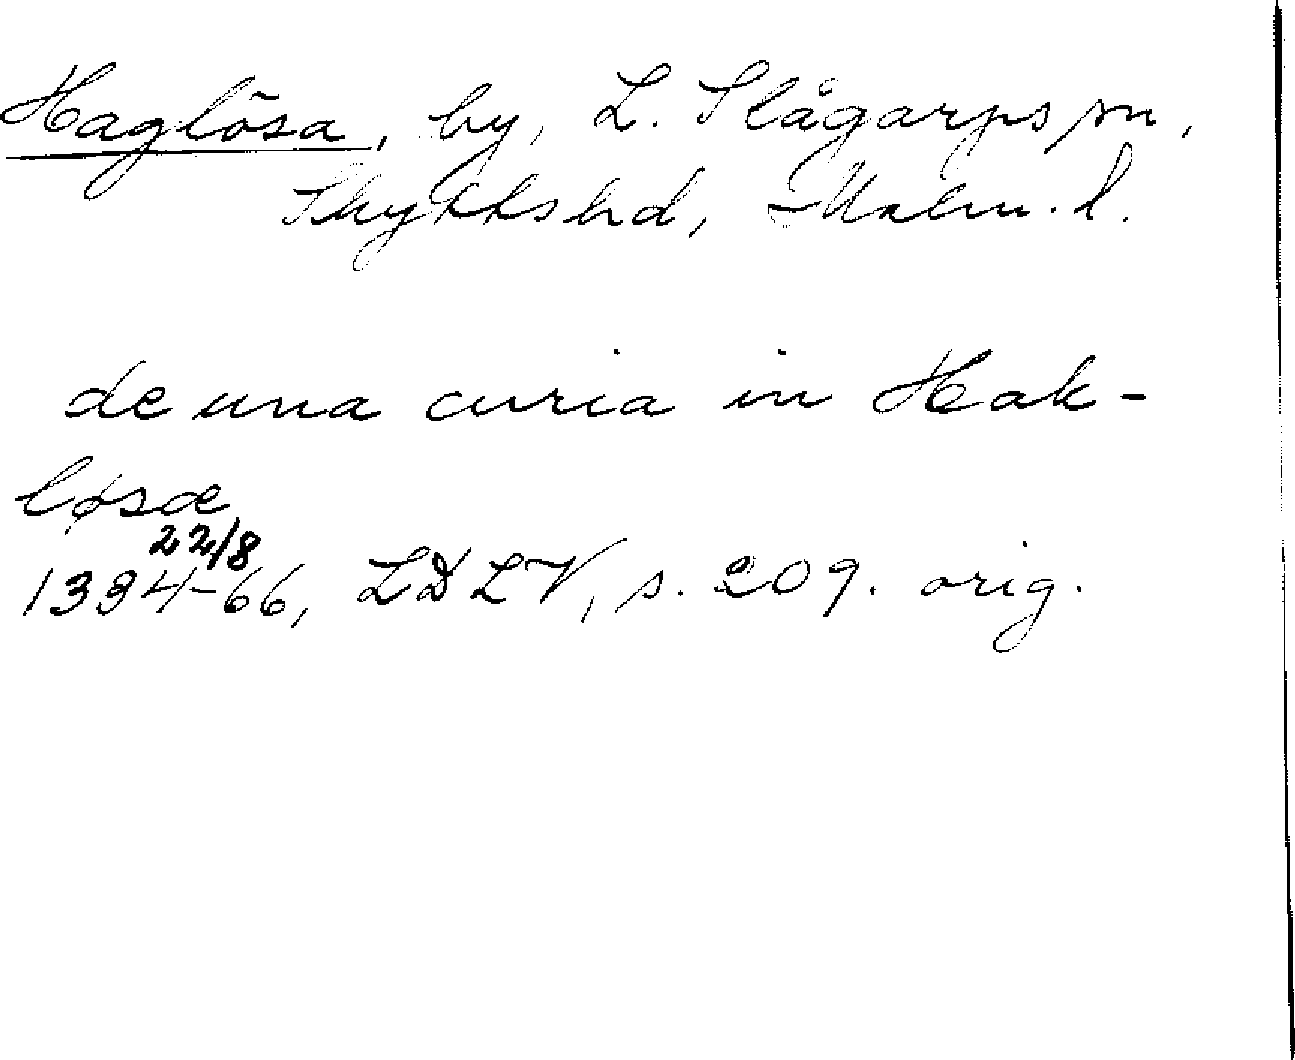 Haglösa, by, L. Slågarps sn,
Skytts hd, Malm. l.
de una curia in Hak-
løsæ
22/8
1334-66, LDLV, s. 209. orig.